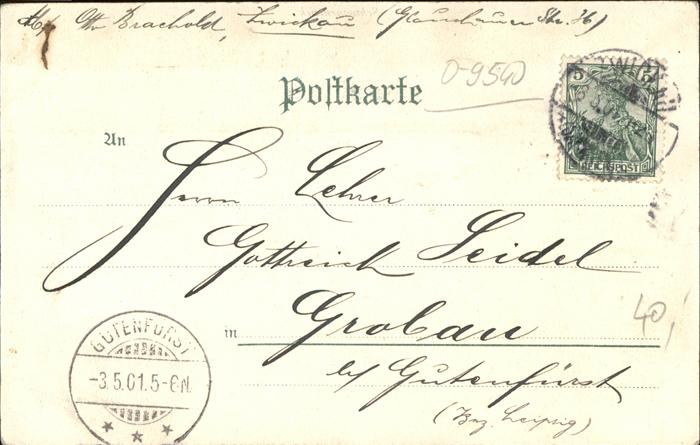 Otto Brachold, Zwickau (Glauchauer Str. 36)
0-9540
Postkarte
ZWICKAU
5 5
REICHSPOST
An
Herrn Lehrer
Gottreich Seidel
in Grobau
b/ Gutenfürst
(Bez. Leipzig)
40,
GUTENFÜRST
-3.5.01.5-6N.